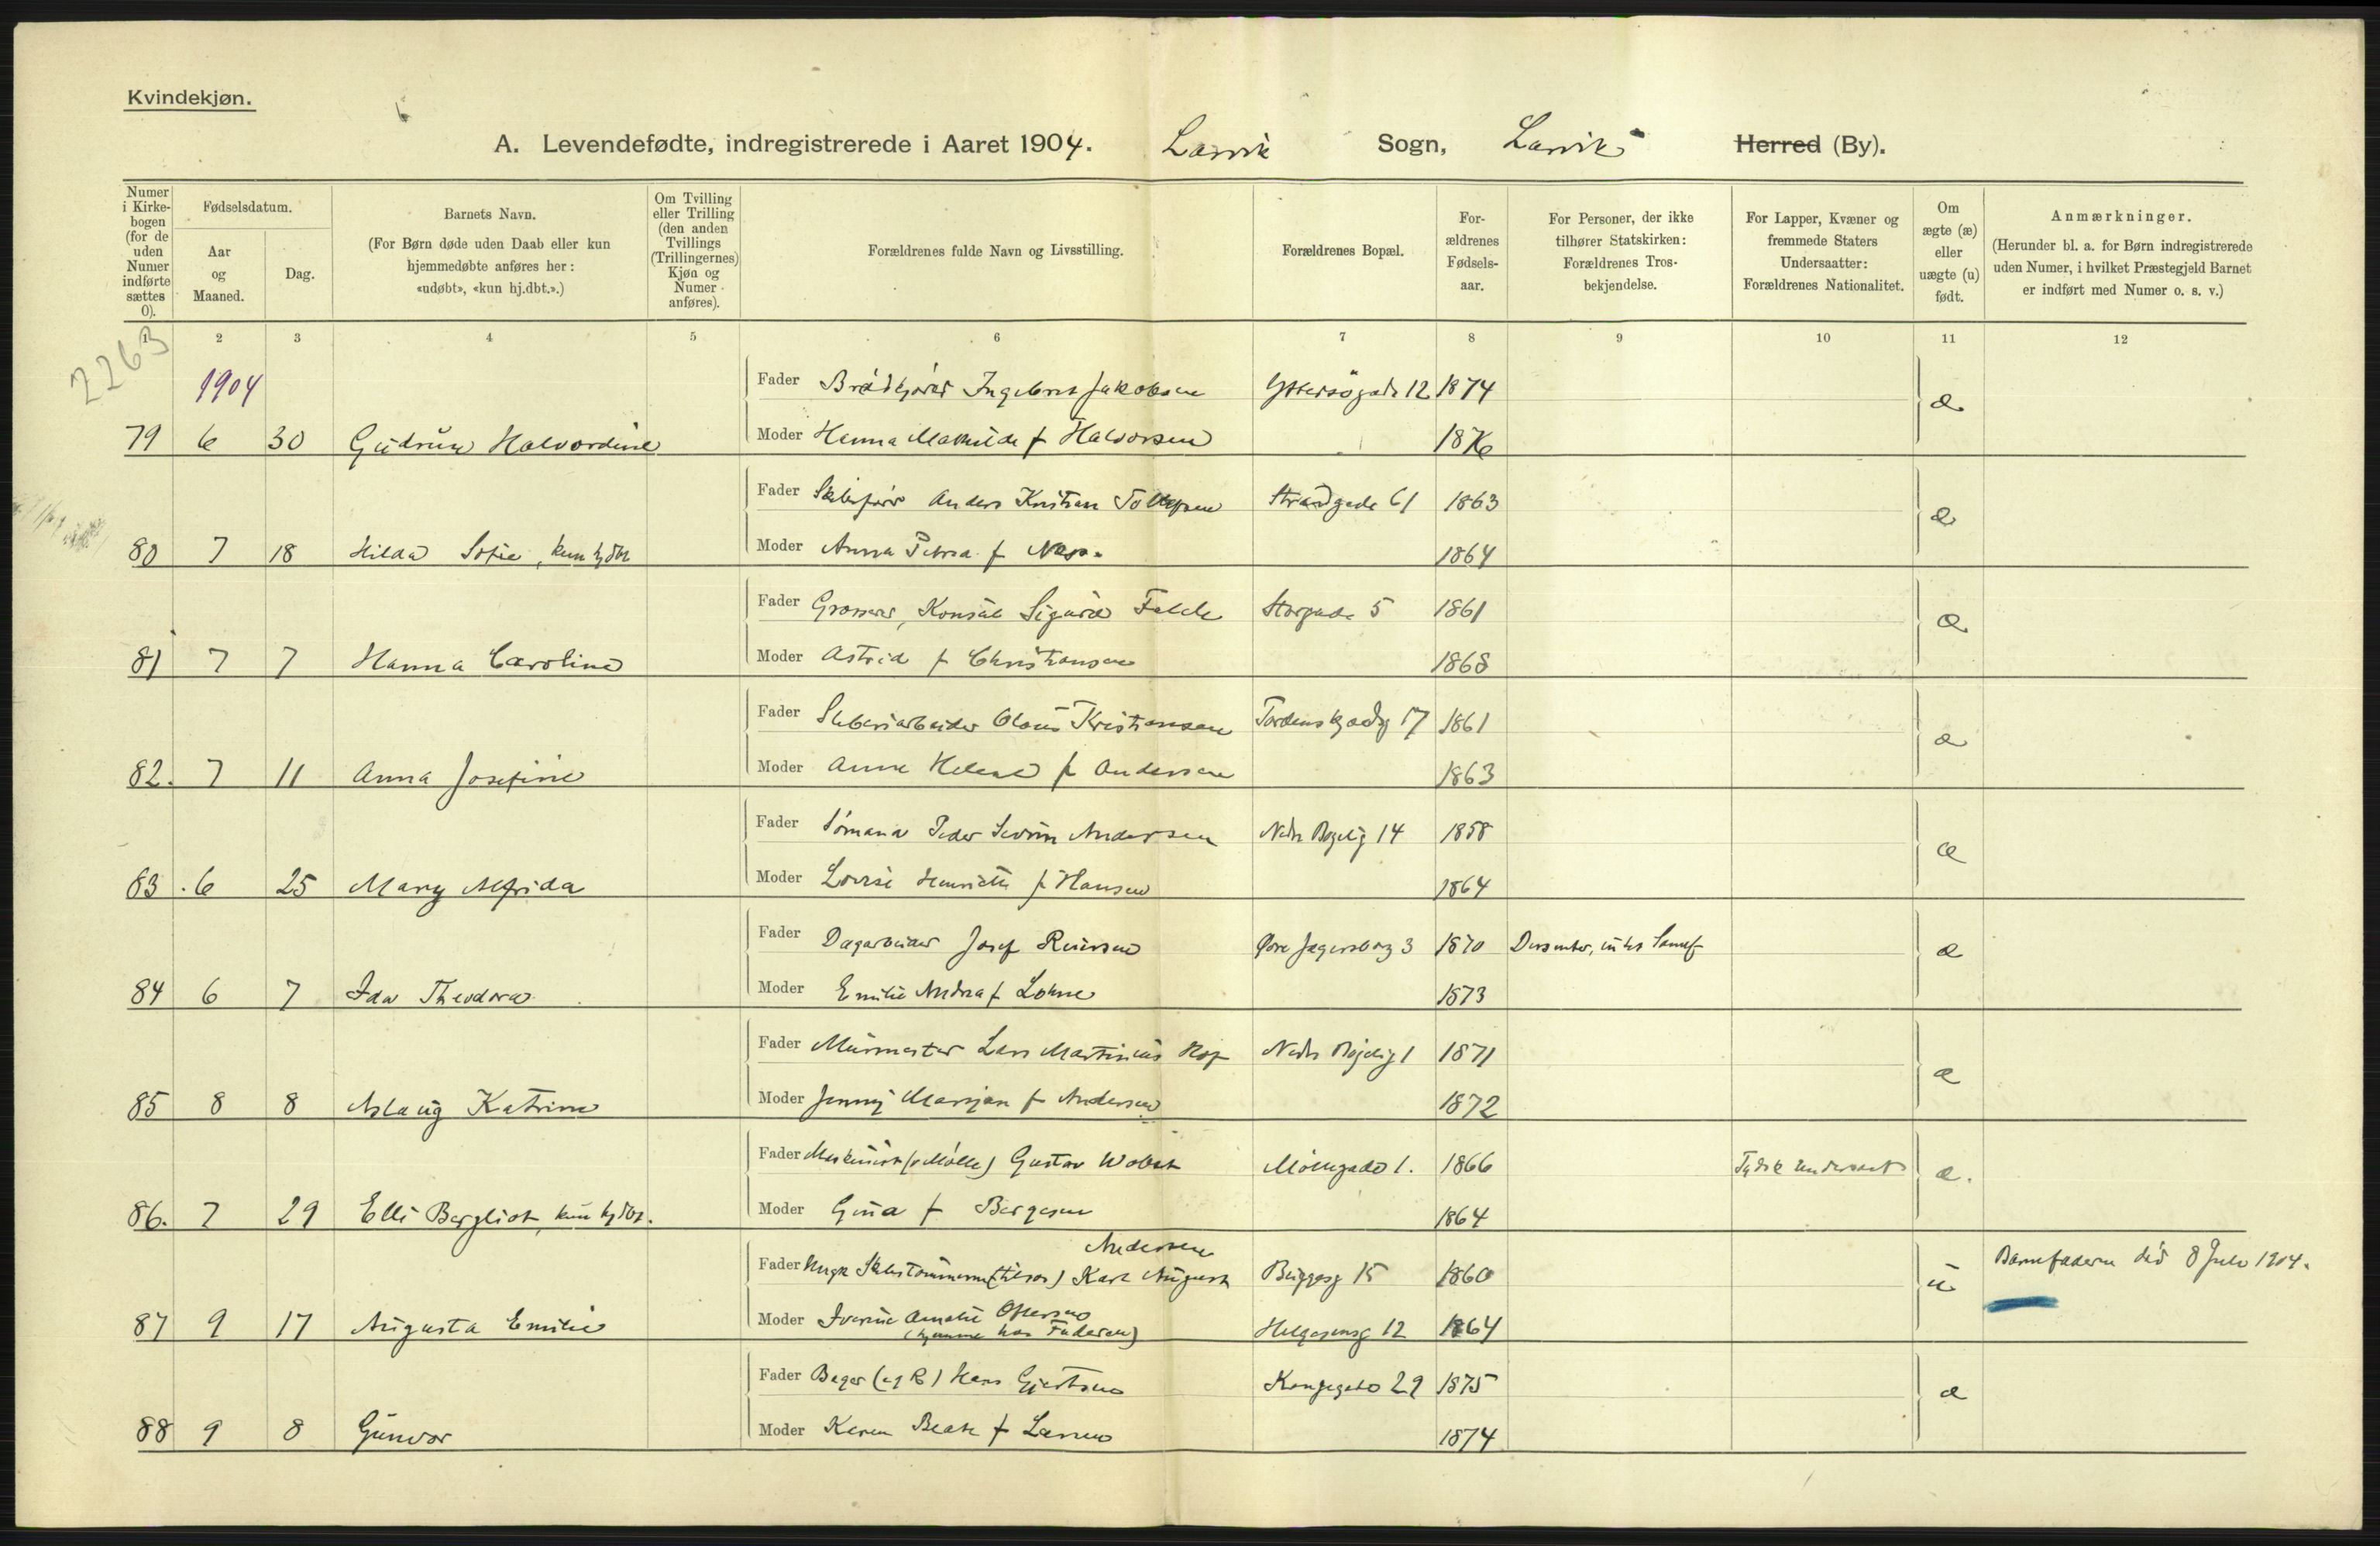 Kvindekjøn.
A. Levendefødte, indregistrerede i Aaret 1904. Larvik Sogn, Larvik Herred (By).
Numer i Kirkebogen (for de uden Numer indførte sættes 0).
Fødselsdatum.
Aar og Maaned.
Dag.
Barnets Navn.
(For Børn døde uden Daab eller kun hjemmedøbte anføres her: «udøbt», «kun hj.dbt.».)
Om Tvilling eller Trilling (den anden Tvillings (Trillingernes) Kjøn og Numer anføres).
Forældrenes fulde Navn og Livsstilling.
Forældrenes Bopæl.
Forældrenes Fødselsaar.
For Personer, der ikke tilhører Statskirken: Forældrenes Trosbekjendelse.
For Lapper, Kvæner og fremmede Staters Undersaatter: Forældrenes Nationalitet.
Om ægte (æ) eller uægte (u) født.
Anmærkninger.
(Herunder bl. a. for Børn indregistrerede uden Numer, i hvilket Præstegjeld Barnet er indført med Numer o. s. v.)
1 2 3 4 5 6 7 8 9 10 11 12
2263
1904 Fader Ingebret Jakobsen 12 1874 æ
79 6 30 Gudrun Halvordine Moder Hanna Mathilde f Halvorsen 1876
Fader Skibsfører Anders Kristian Strandgade 61 1863 æ
80 7 18 Hilda Sofie, kun hj dbt Moder Anna Petrea f 1864
Fader Grosserer, Konsul Sigurd Storgade 5 1861 æ
81 7 7 Hanna Caroline Moder Astrid f Christiansen 1868
Fader Sliberiarbeider Olaus Kristiansen 17 1861 æ
82. 7 11 Anna Josefine Moder Anne Helene f Andersen 1863
Fader Sømand Peder Severin Andersen Nedre 14 1858 æ
83 6 25 Mary Alfrida Moder Lovise Henriette f Hansen 1864
Fader Dagarbeider Josef Øvre Jegersborg 3 1870 Dissenter, æ
84 6 7 Ida Theodora Moder Emilie Andrea f Lohne 1873
Fader Murmester Lars Martinius Nedre 1 1871 æ
85 8 8 Aslaug Katrine Moder Jenny Marijane f Andersen 1872
Fader Maskinist (v Mølle) Gustav Møllegade 1. 1866 Tydsk Undersaat æ.
86. 7 29 Elli Bergliot, kun hj dbt. Moder Gina f Børgesen 1864
Andersen
Fader Ungk Skibstømmerm Karl August Buggesg 15 1860 u Barnefaderen død 8 Juli 1904.
87 9 17 Augusta Emilie Moder Iverine Amalie
(hjemme hos Faderen) Helgesensg 12 1864
Fader Bager (eg R) Hans Gjertsen Kongegade 29 1875 æ
88 9 8 Gunvor Moder Karen Beate f Larsen 1874